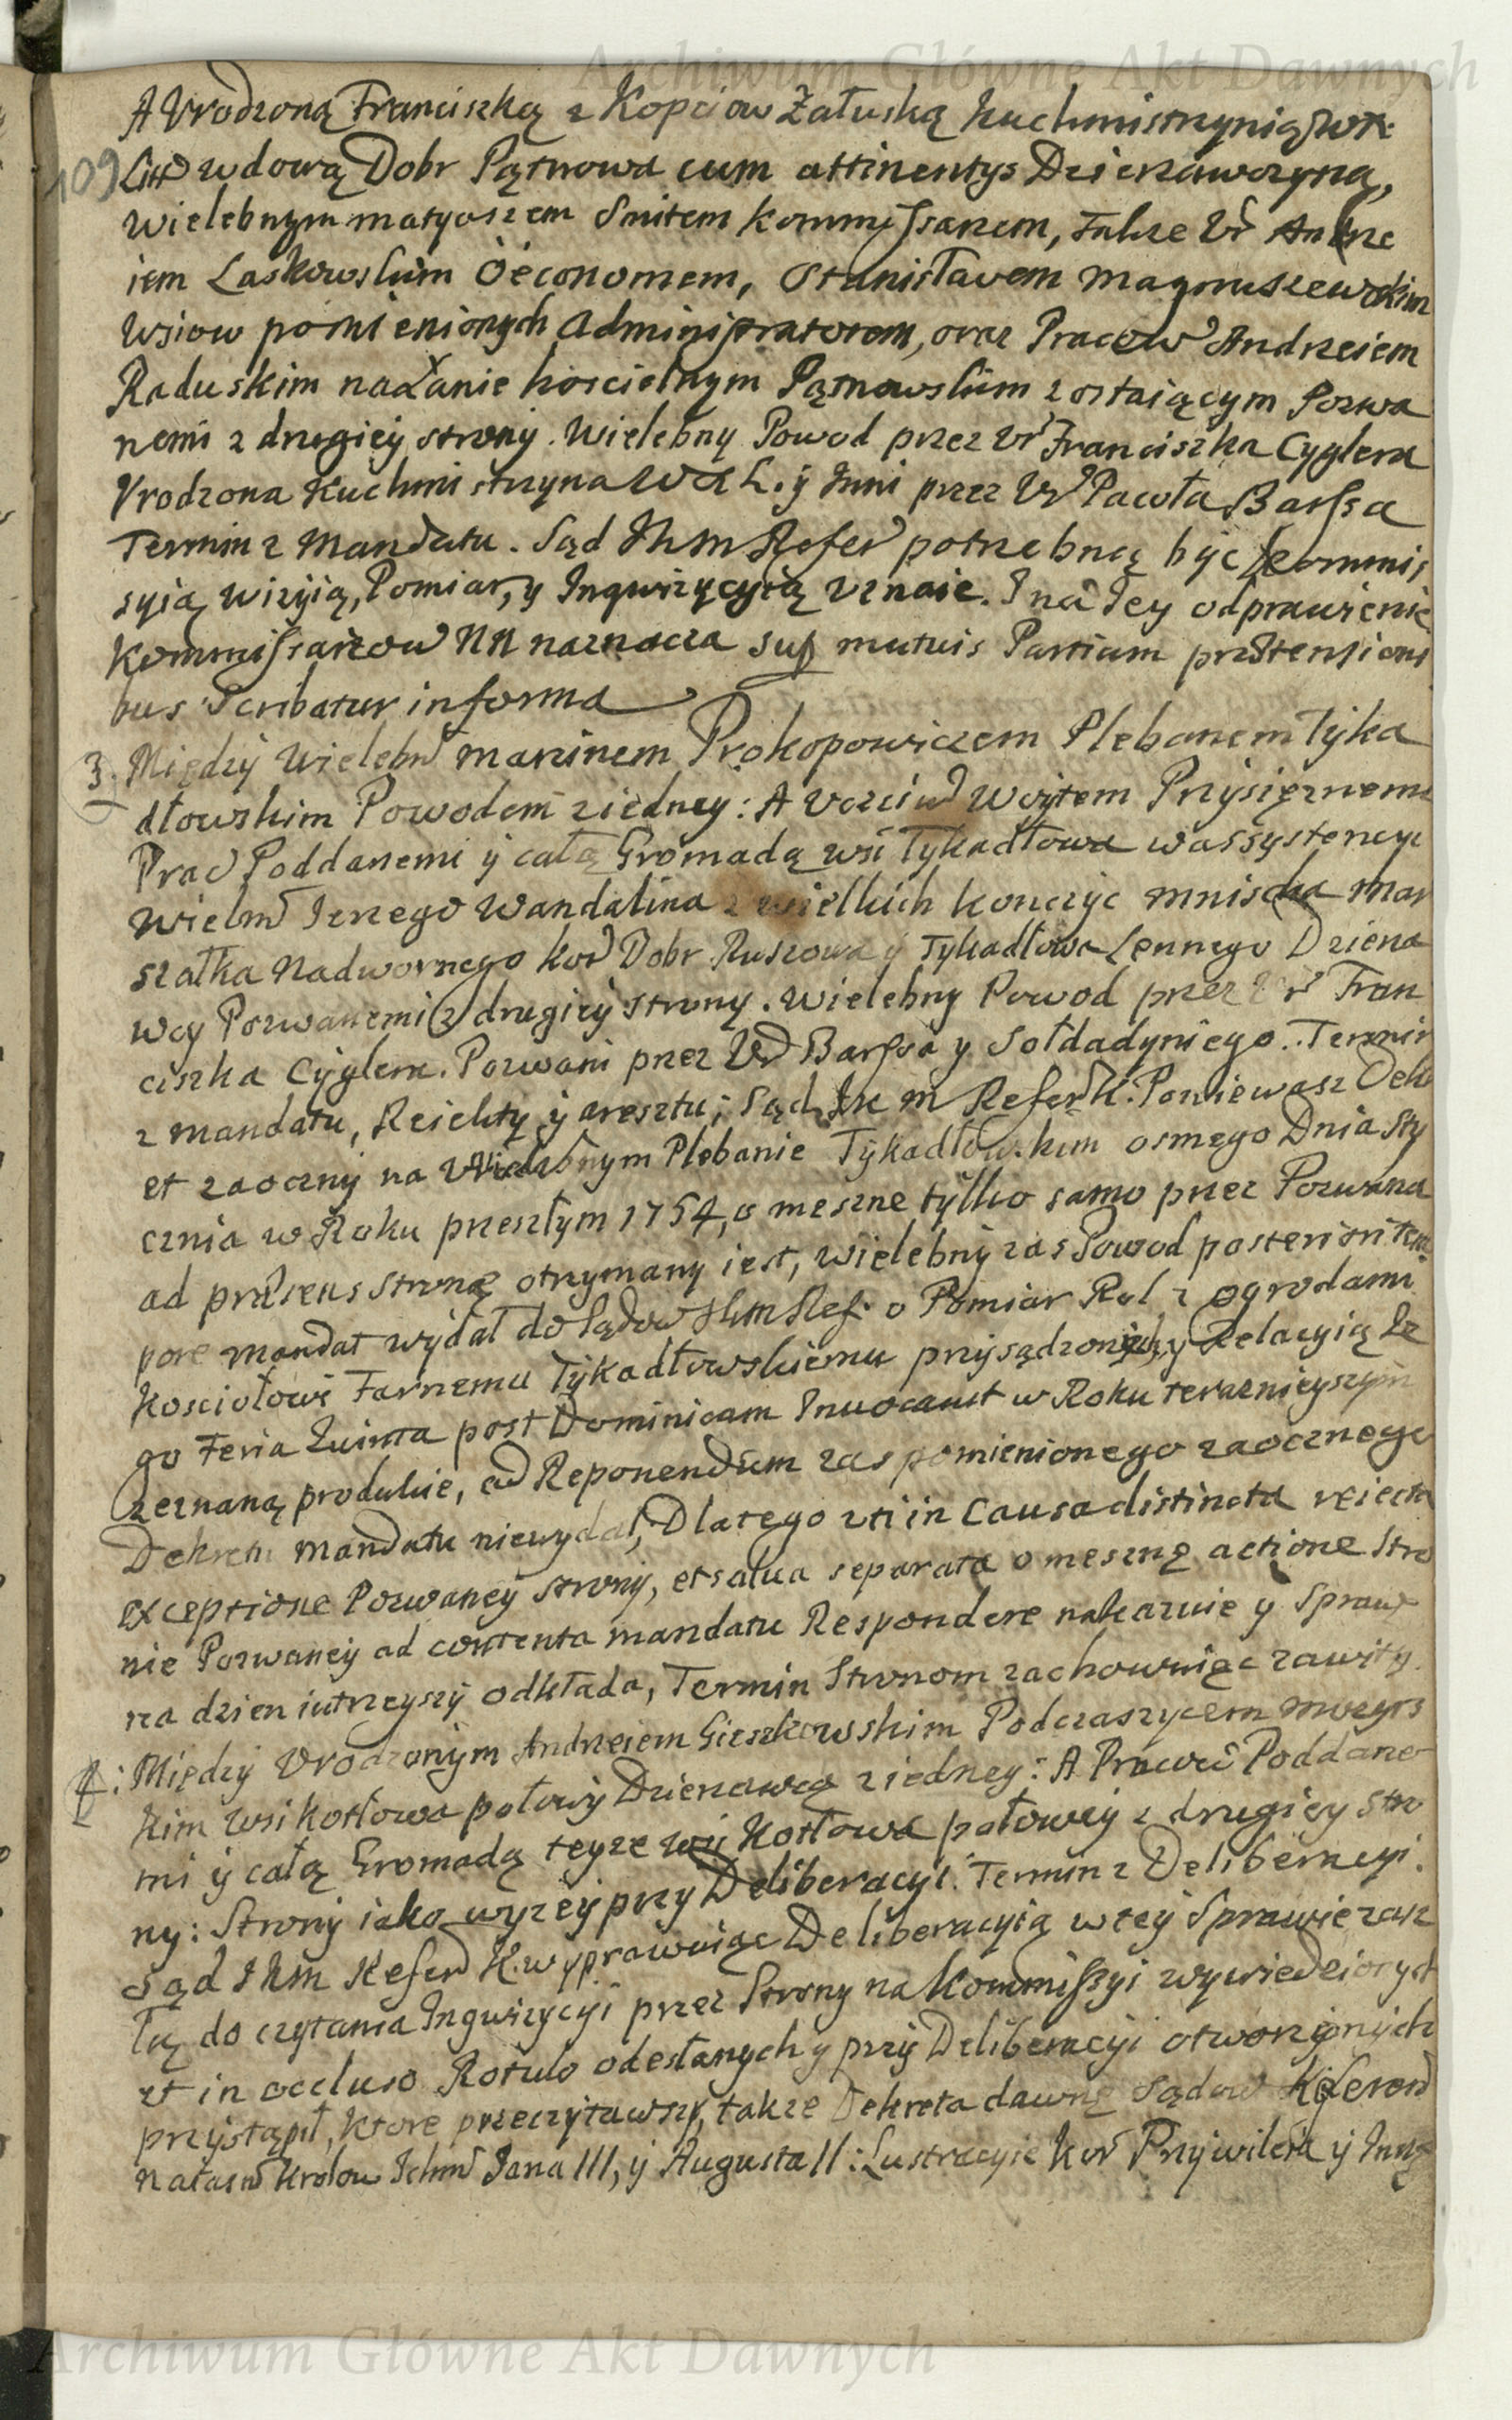 Archiwum Główne Akt Dawnych
A Vrodzoną Franciszką z Kopciow Załuską Kuchmistrzynią WX
109
Litt wdową Dobr Pątnowa cum attinentys Dzierzawczyną,
Wielebnym matyaszem Smitem Kommissarzem, Także Ur
iem Laskowskim Oeconomem, Stanisławem Magnuszewskim
Wsiow pomienionych Administratorem, oraz Pracow Andrzeiem
Raduskim na Łanie koscielnym Pątnowskim zostaiącym Pozwa
nemi z drugiey strony. Wielebny Powod przez Ur Franciszka Cyglera
Vrodzona Kuchmistrzyna W X L. y Inni przez Ur Pawła Barssa
Termin z Mandatu. Sąd IKM Refer potrzebną być Kommis
syią, wizyią, Pomiar, y Inqwizycyią vznaie. I na Jey odprawienie
Kommissarzow NN naznacza sup mutuis Partium prætensioni
bus Scribatur in forma
3. Między Wielebn marcinem Prokopowiczem Plebanem Tyka
dłowskim Powodem z iedney: A Vczciw Woytem Przysięznemi
Prac Poddanemi y całą Gromadą wsi Tykadłowa w assystencyi
Wielm Jerzego Wandalina z wielkich konczyc mniszcha Mar
szałka Nadwornego Kor Dobr Ruszowa y Tykadłowa Lennego Dzierza
wcy Pozwanemi z drugiey strony. Wielebny Powod przez Ur Fran
ciszka Cyglera. Pozwani przez Ur Barssa y Sołdadyniego. Termin
z mandatu, Reiekty y aresztu; Sąd JK M Refer K. Poniewasz Dekr
et zaoczny na Wielebnym Plebanie Tykadłowskim osmego Dnia Sty
cznia w Roku przeszłym 1754, o meszne tylko samo przez Pozwaną
ad præsens stronę otrzymany iest, Wielebny zas Powod posteriori tem
pore mandat wydał do Sądow IKM Ref. o Pomiar Rol z ogrodami
Kosciołowi Farnemu Tykadłowskiemu przysądzonych, y Relacyią Je
go Feria Quinta post Dominicam Inuocauit w Roku teraznieyszym
zeznaną produkuie, ad Reponendum zas pomienionego zaocznego
Dekretu mandatu niewydał, Dlatego uti in Causa distincta reiecta
exceptione Pozwaney strony, et salua separata o mesznę actione Stro
nie Pozwaney ad contenta mandatu Respondere nakazuie y Spraw
na dzien iutrzeyszy odkłada, Termin Stronom zachowuiąc zawity.
4: Między Vrodzonym Andrzeiem Gieszkowskim Podczaszycem mozyrs
kim wsi Kotłowa połowy Dzierzawcą z iedney: A Pracow Poddane
mi y całą Gromadą teyze wsi Kotłowa połowey z drugiey stro
ny: Strony iako wyzey przy Deliberacyi. Termin z Deliberacyi.
Sąd IKM Refer K. wyprawuiąc Deliberacyią w tey Sprawie zasz
łą do czytania Inqwizycyi przez Strony na Kommissyi wywiedzionych
et in occluso Rotulo odesłanych y przy Deliberacyi otworzonych
przystąpił, Ktore przeczytawszy, także Dekreta dawne Sądow Referend
Naiasn Krolow Ichm Jana III, y Augusta II: Lustracyie Kor Przywileia y Inne
Archiwum Główne Akt Dawnych